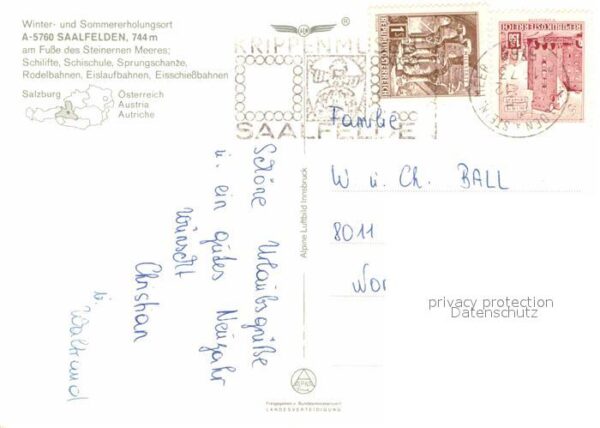 Winter- und Sommererholungsort
A-5760 SAALFELDEN, 744 m
am Fuße des Steinernen Meeres;
Schilifte, Schischule, Sprungschanze,
Rodelbahnen, Eislaufbahnen, Eisschießbahnen
Salzburg
Österreich
Austria
Autriche
®
KRIPPENMUS
SAALFELDE
REPUBLIK ÖSTERREICH
Schöne Urlaubsgrüße
u. ein gutes Neujahr
wünscht
Christian
u. Waltraud
Alpine Luftbild Innsbruck
Freigegeben v. Bundesministerium f.
LANDESVERTEIDIGUNG
Familie
W u. Ch. BALL
8011
Wor
privacy protection
Datenschutz